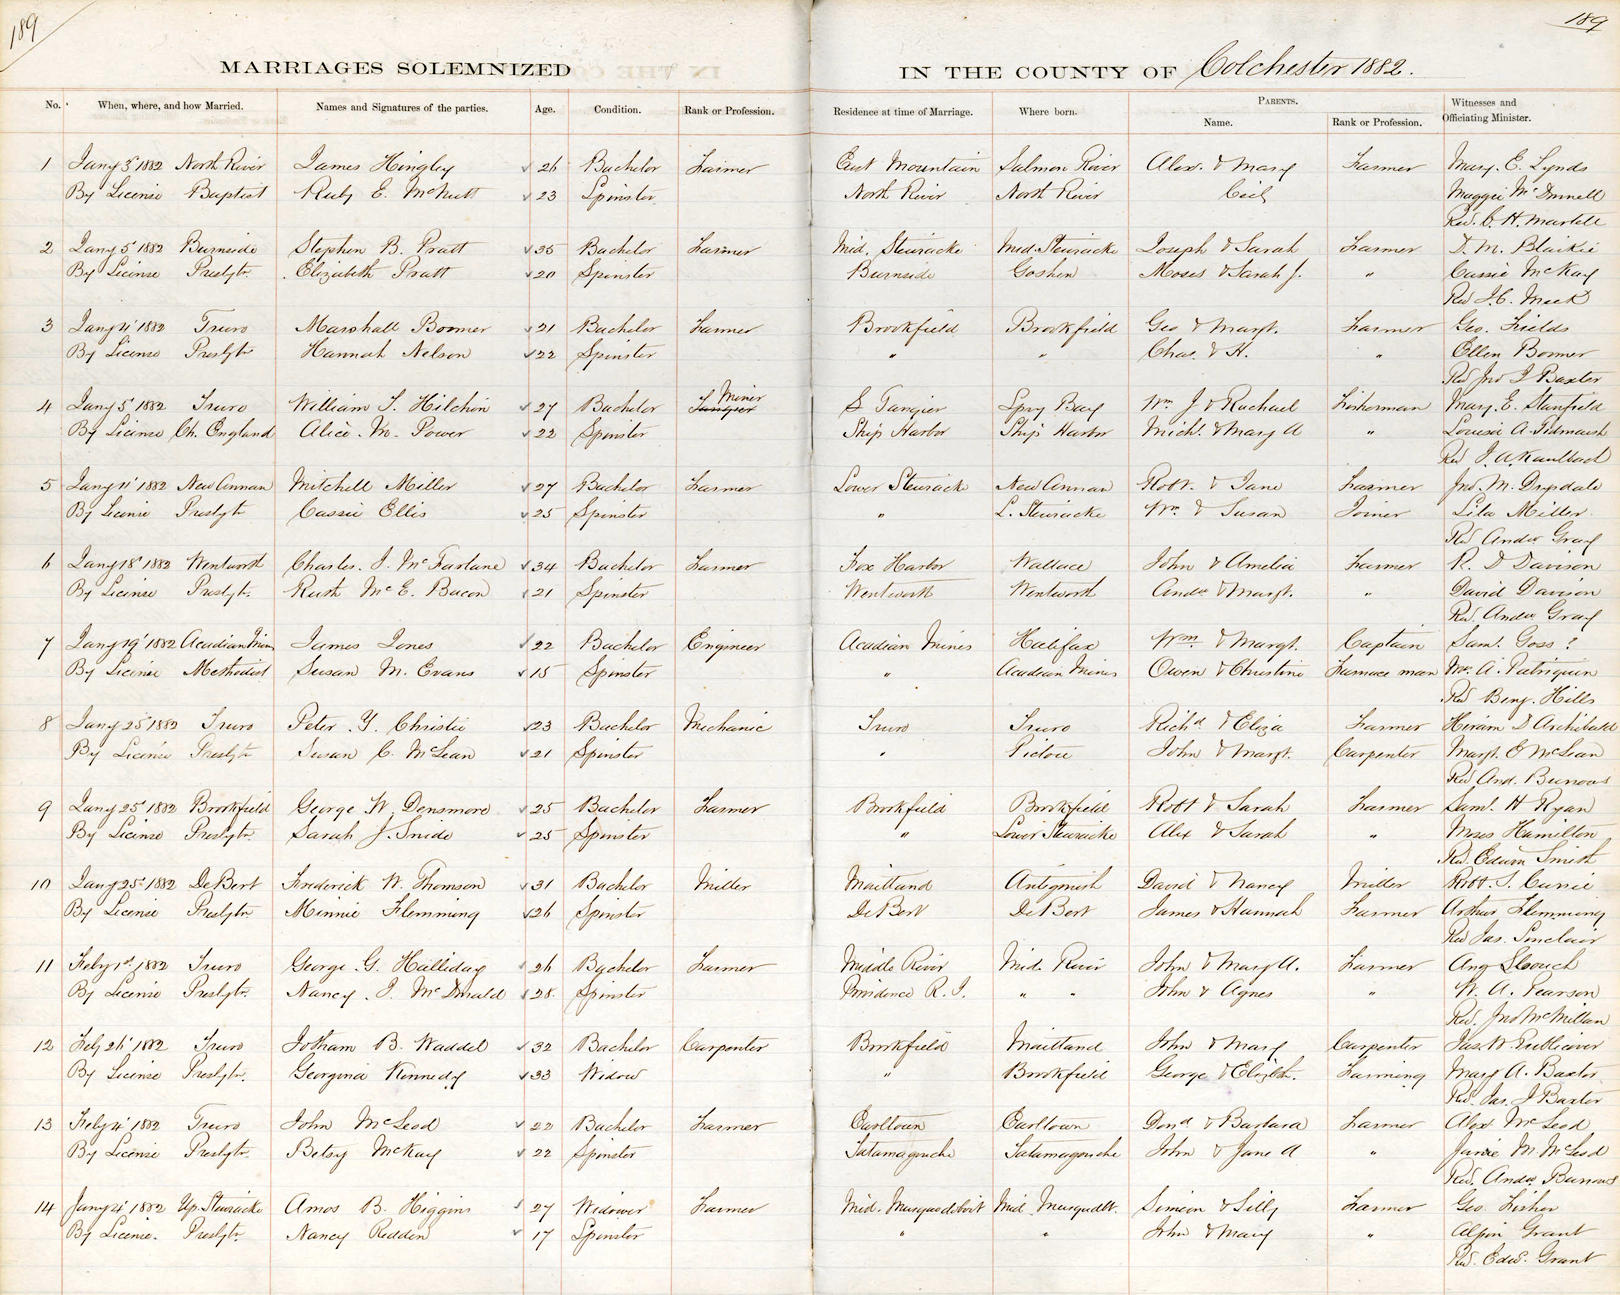 189
189
MARRIAGES SOLEMNIZED IN THE COUNTY OF Colchester 1882.
No. When, where, and how Married. Names and Signatures of the parties. Age. Condition. Rank or Profession. Residence at time of Marriage. Where born. PARENTS. Name. Rank or Profession. Witnesses and Officiating Minister.
1 Jany 3 1882 North River James Hingley 26 Bachelor Farmer East Mountain Salmon River Alex. & Mary Farmer Mary E. Lynds
By License Baptist Ruby E. McNutt 23 Spinster North River North River Maggie
Rev. C. H. Martell
2 Jany 5 1882 Burnside Stephen B. Pratt 35 Bachelor Farmer Mid. Stewiacke Mid. Stewiacke Joseph & Sarah Farmer D. M. Blaikie
By License Presbytn. Elizabeth Pratt 20 Spinster Burnside Goshen Moses & Sarah J. " Cassie McKay
Rev J. C. Meek
3 Jany 4 1882 Truro Marshall Boomer 21 Bachelor Farmer Brookfield Brookfield Geo & Margt. Farmer Geo. Fields
By License Presbytn Hannah Nelson 22 Spinster " " Chas. & H. " Ellen Boomer
Rev Jno I Baxter
Miner
4 Jany 5 1882 Truro William J. Hilchin 27 Bachelor S Tangier Spry Bay Wm J & Rachael Fisherman Mary E. Stanfield
By License Ch. England Alice M. Power 22 Spinster Ship Harbor Ship Harbor Mich. & Mary A " Louisa A. Tidmarsh
Rev J. A. Kaulbach
5 Jany 11 1882 New Annan Mitchell Miller 27 Bachelor Farmer Lower Stewiacke New Annan Robt. & Jane Farmer Jno. M. Drysdale
By License Presbytn Cassie Ellis 25 Spinster " L. Stewiacke Wm & Susan Joiner Lila Miller
Rev Andw Gray
6 Jany 18 1882 Wentworth Charles. J. McFarlane 34 Bachelor Farmer Fox Harbor Wallace John & Amelia Farmer R. D Davison
By License Presbytn. Ruth McE. Bacon 21 Spinster Wentworth Wentworth Andw & Margt. " David Davison
Rev. Andw Gray
7 Jany 19 1882 Acadian Mines James Jones 22 Bachelor Engineer Acadian Mines Halifax Wm. & Margt. Captain Saml. Goss ?
By License Methodist Susan M. Evans 15 Spinster " Acadian Mines Owen & Christine Furnace man A. Patriquin
Rev Benj. Hills
8 Jany 25 1882 Truro Peter Y. Christie 23 Bachelor Mechanic Truro Truro Richd & Eliza Farmer Hiram D Archibald
By License Presbytn Susan C. McLean 21 Spinster " Pictou John & Margt. Carpenter Margt. E McLean
Rev And. Burrows
9 Jany 25 1882 Brookfield George W. Densmore 25 Bachelor Farmer Brookfield Brookfield Robt & Sarah Farmer Saml. H Ryan
By License Presbytn. Sarah J. Snide 25 Spinster " Lower Stewiacke Alex & Sarah " Moses Hamilton
Rev. Edwin Smith
10 Jany 25 1882 DeBert Frederick W. Thomson 31 Bachelor Miller Maitland Antigonish David & Nancy Miller Robt. S. Currie
By License Presbytn Minnie Flemming 26 Spinster DeBert DeBert James & Hannah Farmer Arthur Flemming
Rev Jas. Sinclair
11 Feby 1st 1882 Truro George G. Halliday 26 Bachelor Farmer Middle River Mid. River John & Mary A. Farmer Ang
By License Presbytn. Nancy J. McDonald 28 Spinster Providence R. I. " " John & Agnes " W. A. Pearson
Rev. Jno McMillan
12 Feby 26 1882 Truro Jotham B. Waddel 32 Bachelor Carpenter Brookfield Maitland John & Mary Carpenter Jas. W.
By License Presbytn. Georgina Kennedy 33 Widow " Brookfield George & Elizbth. Farming Mary A. Baxter
Rev. Jas. J Baxter
13 Feby 4 1882 Truro John McLeod 22 Bachelor Farmer Earltown Earltown Dond & Barbara Farmer Alex McLeod
By License Presbytn. Betsy McKay 22 Spinster Tatamagouche Tatamagouche John & Jane A " Janie M. McLeod
Rev. Andw Burrows
14 Jany 4 1882 Up. Stewiacke Amos B. Higgins 27 Widower Farmer Mid. Musquodoboit Mid Musqudbt. Simeon & Silly Farmer Geo. Fisher
By License. Presbytn. Nancy Redden 17 Spinster " " John & Mary " Alpin Grant
Rev. Edw. Grant